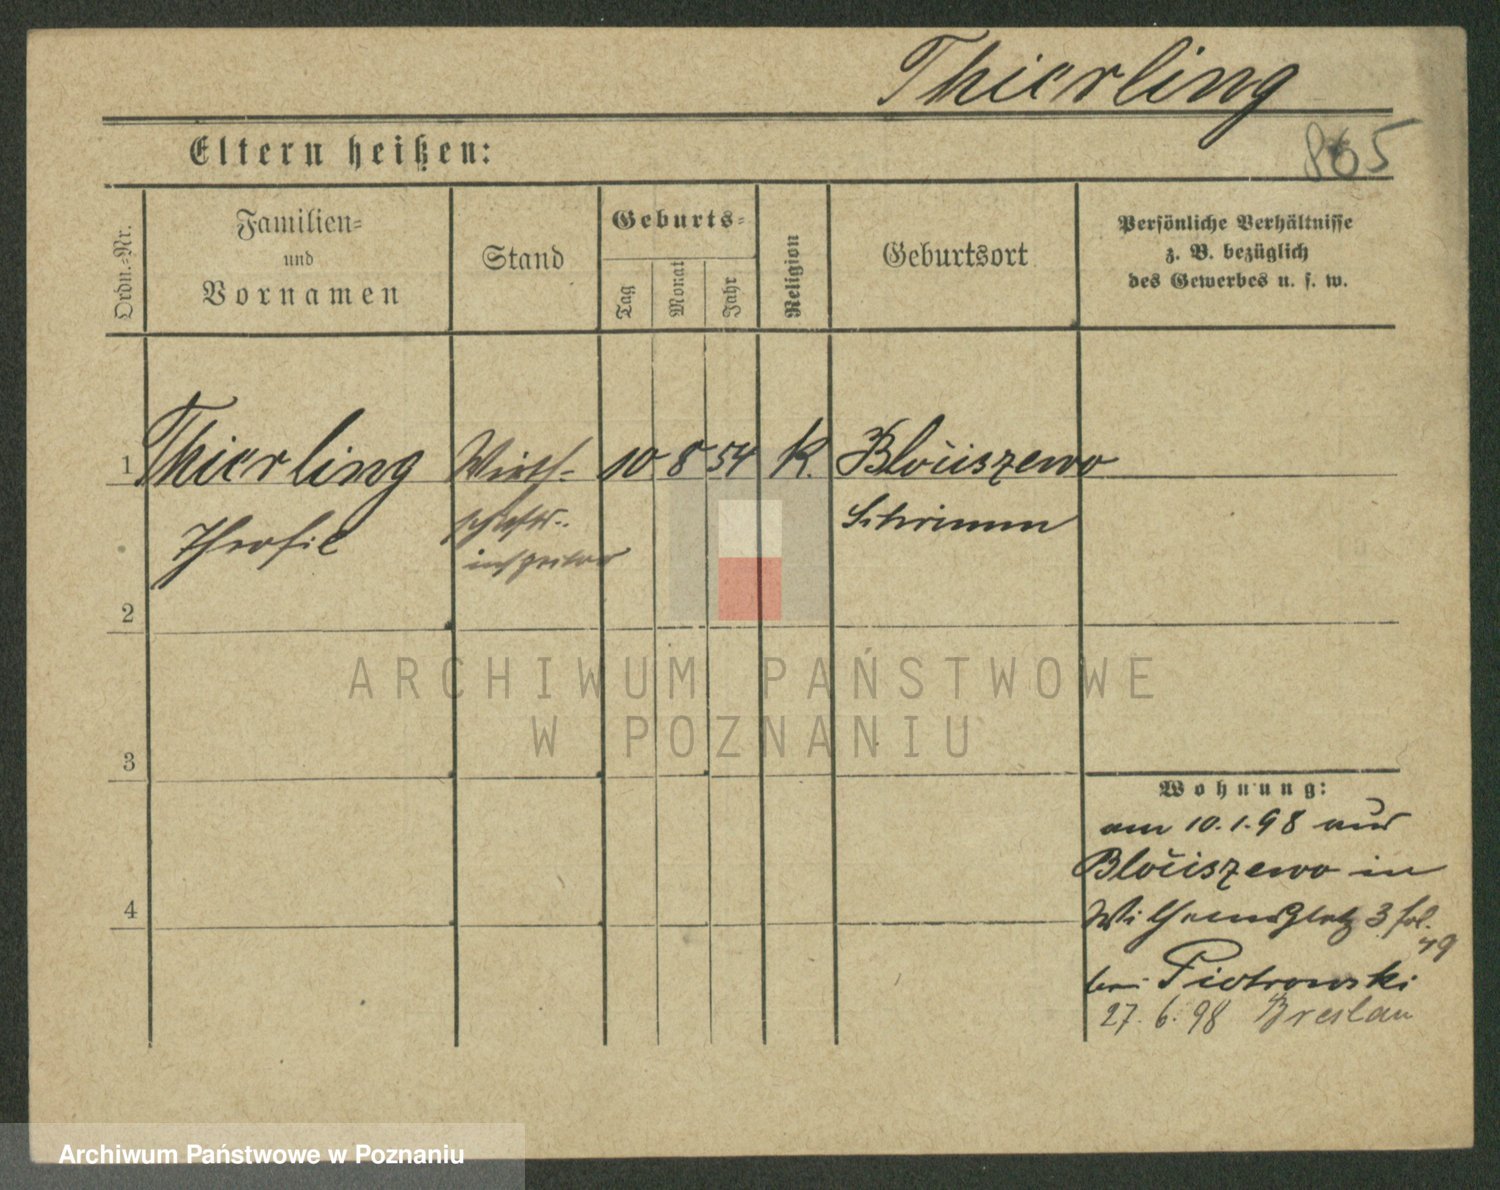 Thierling
865
Eltern heißen:
Ordn.-Nr.
Familien-
und
Vornamen
Stand
Geburts-
Tag
Monat
Jahr
Religion
Geburtsort
Persönliche Verhältnisse
z. B. bezüglich
des Gewerbes u. s. w.
1 Thierling Wirth- 10 8 54 K. Blociszewo
Theofil schafts- Schrimm
inspector
2
ARCHIWUM PAŃSTWOWE
W POZNANIU
3
Wohnung:
am 10.1.98 aus
Blociszewo in
4
Wilhelmsplatz 3
bei Piotrowski
27. 6. 98 Breslau
Archiwum Państwowe w Poznaniu